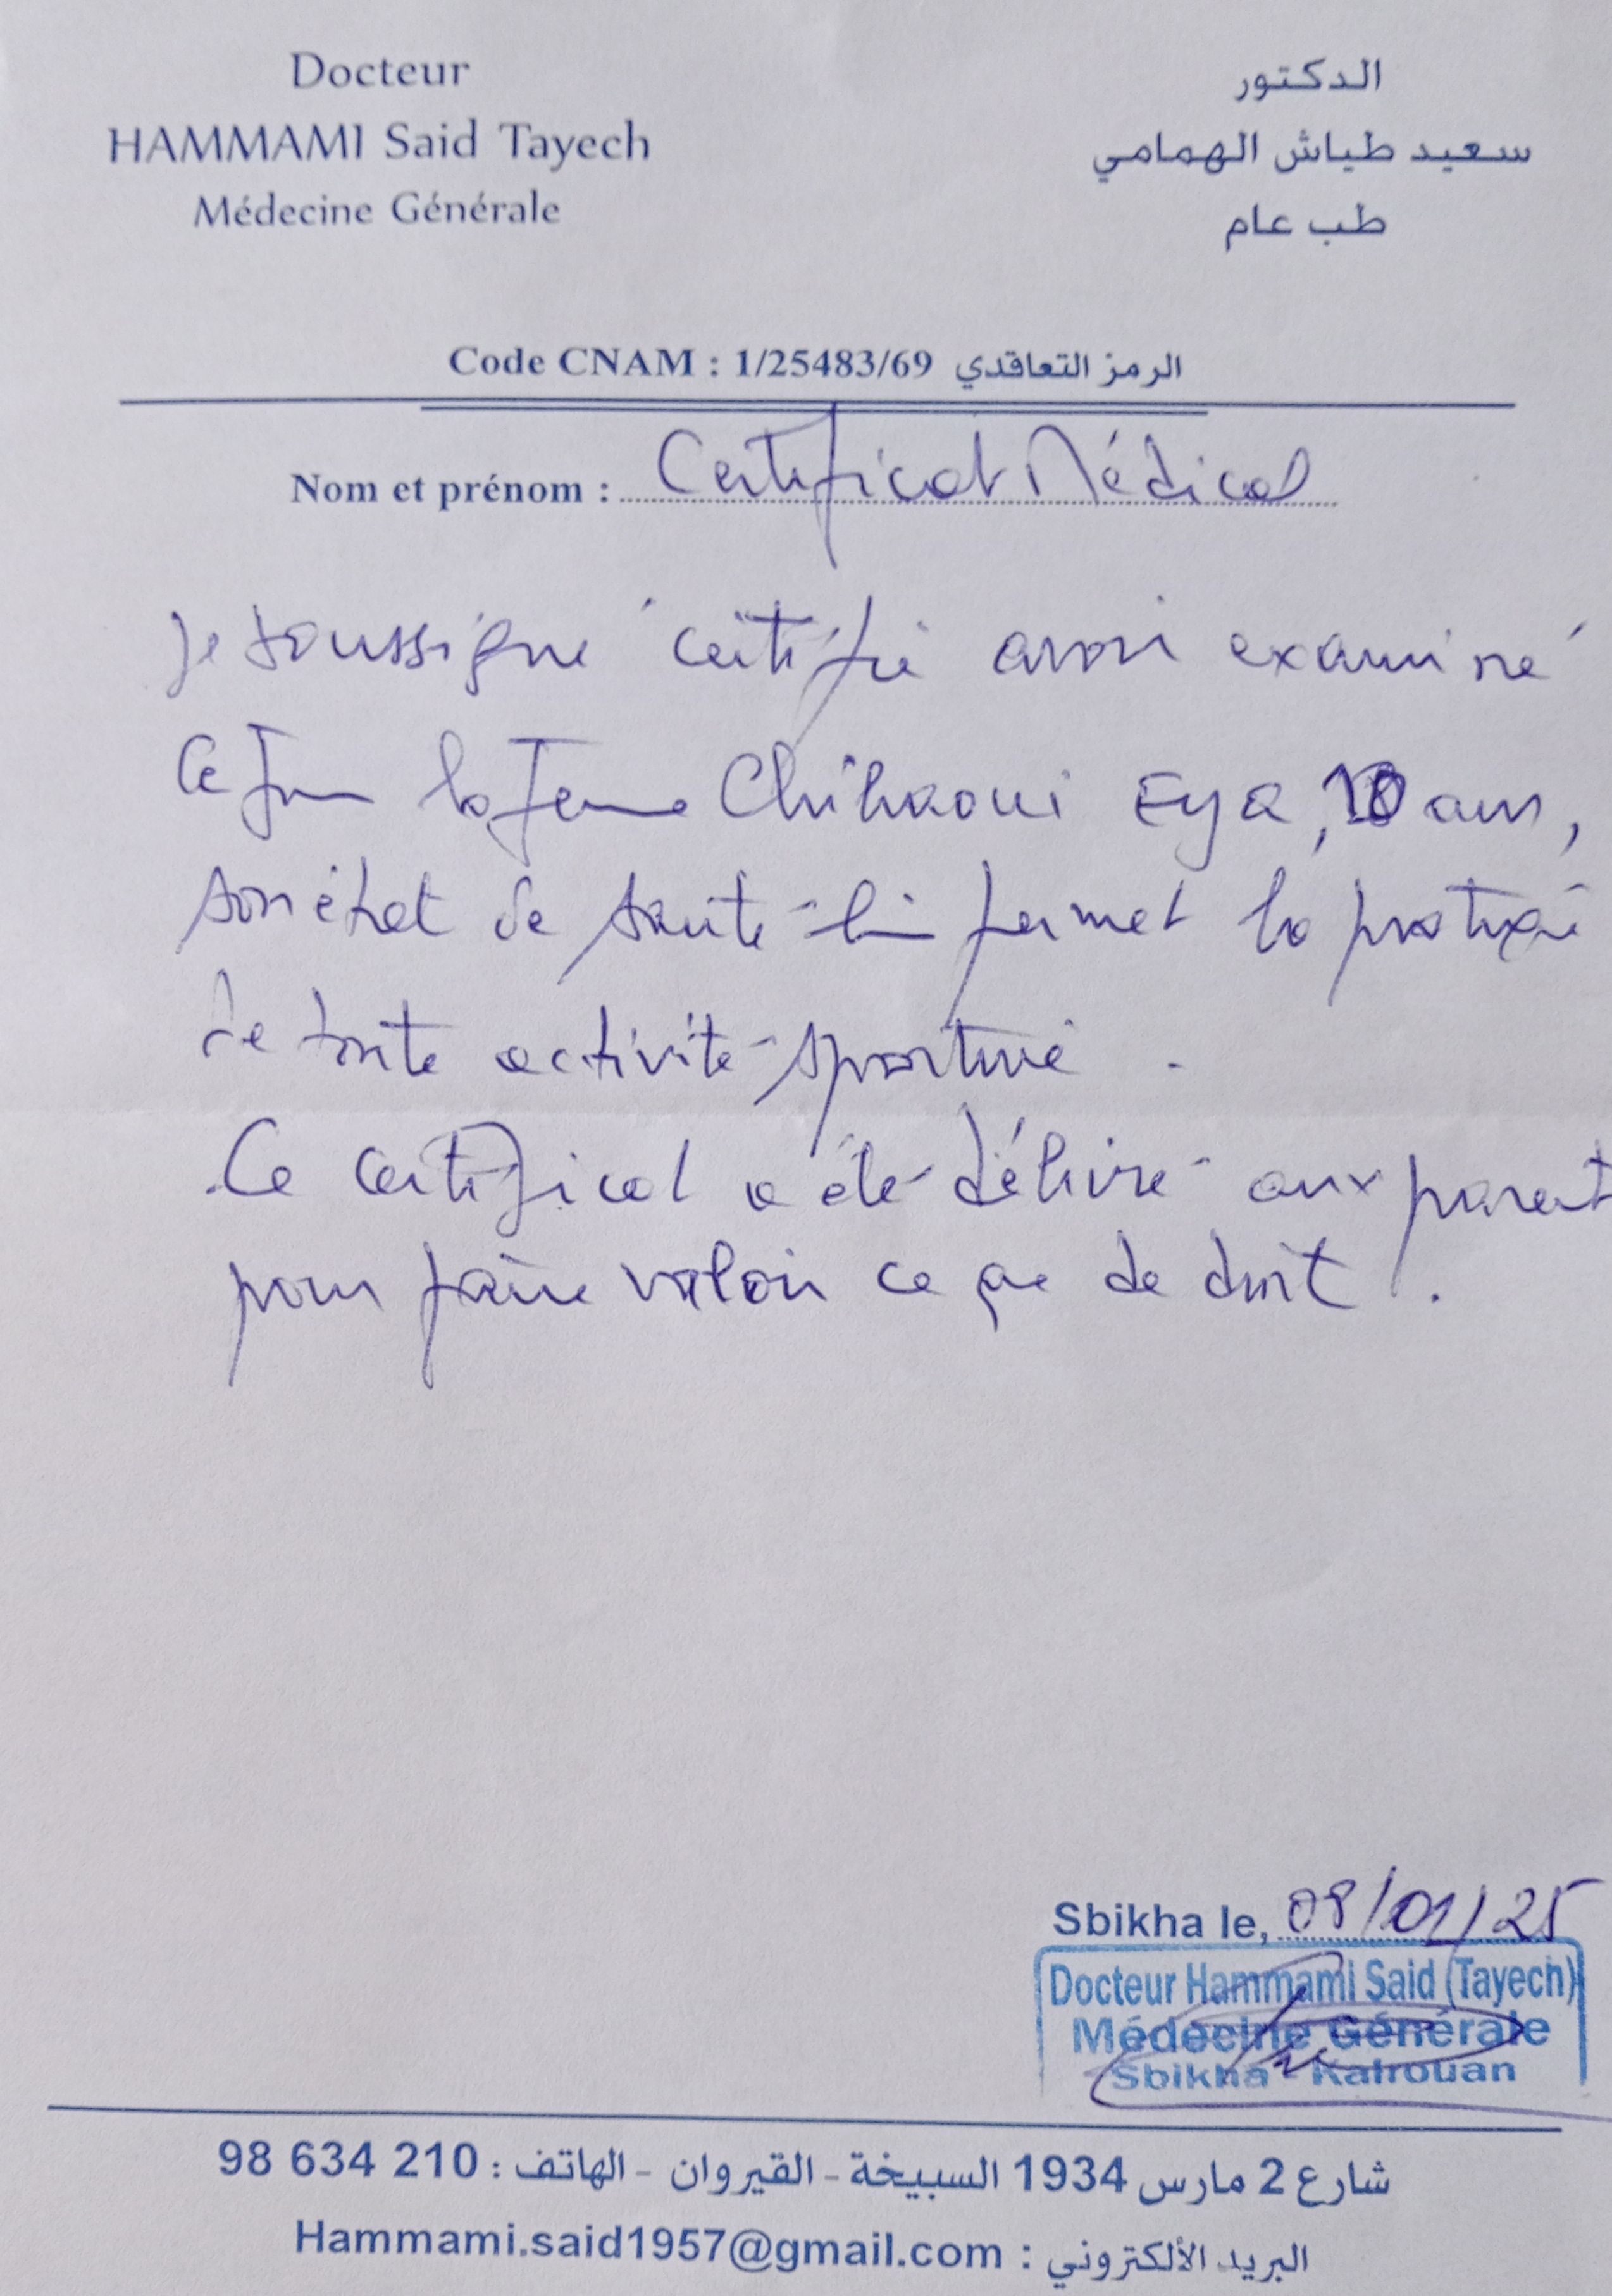 Docteur
HAMMAMI Said Tayech
Médecine Générale
الدكتور
سعيد طياش الهمامي
طب عام
Code CNAM : 1/25483/69 الرمز التعاقدي
Nom et prénom : Certificat Médical
Je soussigné certifie avoir examiné
Ce jour la jeune Chihaoui Eya, ans,
son état de santé lui permet la pratique
de toute activité sportive .
Ce certificat a été délivré aux parent
pour faire valoir ce que de droit .
Sbikha le, 08/01/25
Docteur Hammami Said (Tayech)
Médecine Générale
Sbikha - Kairouan
شارع 2 مارس 1934 السبيخة - القيروان - الهاتف : 98 634 210
Hammami.said1957@gmail.com : البريد الألكتروني